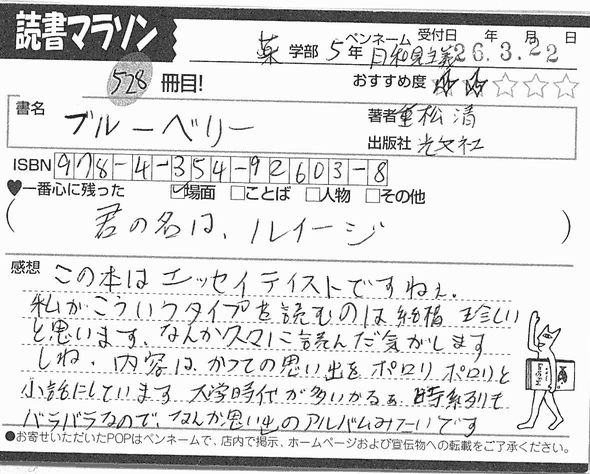 読書マラソン
薬 学部 5 年 ペンネーム 日和見主義 受付日 年 月 日
26.3.22
528 冊目!
おすすめ度 ★★☆☆☆
書名 ブルーベリー
著者 重松 清
出版社 光文社
ISBN 978-4-334-92603-8
♥一番心に残った ☑場面 □ことば □人物 □その他
(君の名は、ルイージ)
感想 この本はエッセイテイストですねぇ。
私がこういうタイプを読むのは結構 珍しい
と思います、なんか久々に読んだ気がします
しね。内容は、かつての思い出をポロリ ポロリと
小話にしています 大学時代が多いかなぁ、時系列も
バラバラなので、なんか思い出のアルバムみたいです
●お寄せいただいたPOPはペンネームで、店内で掲示、ホームページおよび宣伝物への転載をご了承ください。